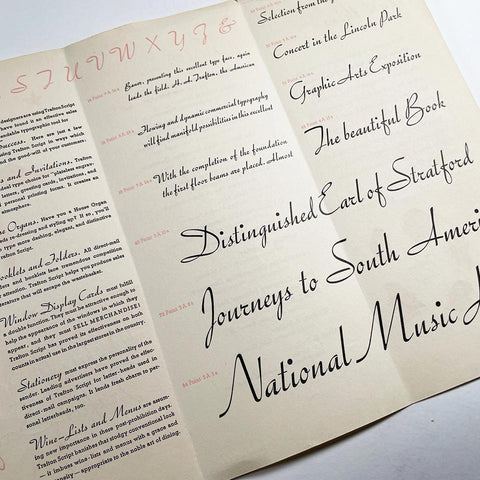 S T U V W X Y Z &
designers are using Trafton Script
have found in an effective sales
Success. Here are just a few
using Trafton Script in ways
and the good-will of your customers.
and Invitations. Trafton
ideal type choice for "plateless engrav-
letters, greeting cards, invitations, and
personal printing forms. It creates an
atmosphere.
Organs. Have you a House Organ
needs re-dressing and styling up? If so, you'll
type more dashing, elegant, and distinctive
Booklets and Folders. All direct-mail
and booklets face tremendous competition
attention. Trafton Script helps you produce sales
literature that will escape the wastebasket.
Window Display Cards must fulfill
a double function. They must be attractive enough to
help the appearance of the windows in which they
appear, and they must SELL MERCHANDISE!
Trafton Script has proved its effectiveness on both
counts in actual use in the largest stores in the country.
Stationery must express the personality of the
sender. Leading advertisers have proved the effec-
tiveness of Trafton Script for letter-heads used in
direct-mail campaigns. It lends fresh charm to per-
sonal letterheads, too.
Wine-Lists and Menus are assum-
ing new importance in these post-prohibition days.
Trafton Script banishes that stodgy conventional look
— it imbues wine-lists and menus with a grace and
— appropriate to the noble art of dining.
Bauer, presenting this excellent type face, again
leads the field. H. A. Trafton, the American
Flowing and dynamic commercial typography
will find manifold possibilities in this excellent
With the completion of the foundation
the first floor beams are placed. Almost
Selection from the
Concert in the Lincoln Park
Graphic Arts Exposition
The beautiful Book
Distinguished Earl of Stratford
72 Point 3 A
Journeys to South Ameri
84 Point 3 A
National Music